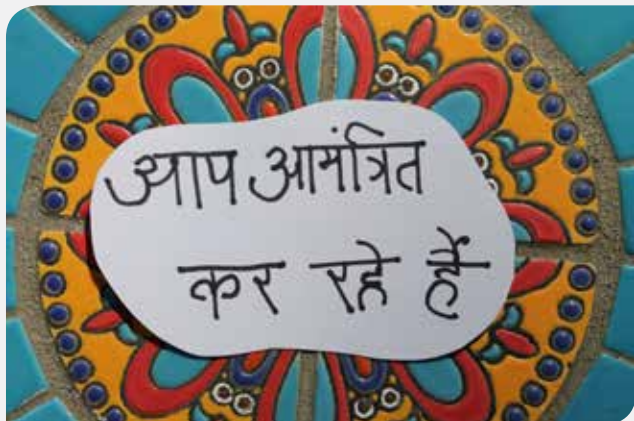 आप आमंत्रित
कर रहे हैं